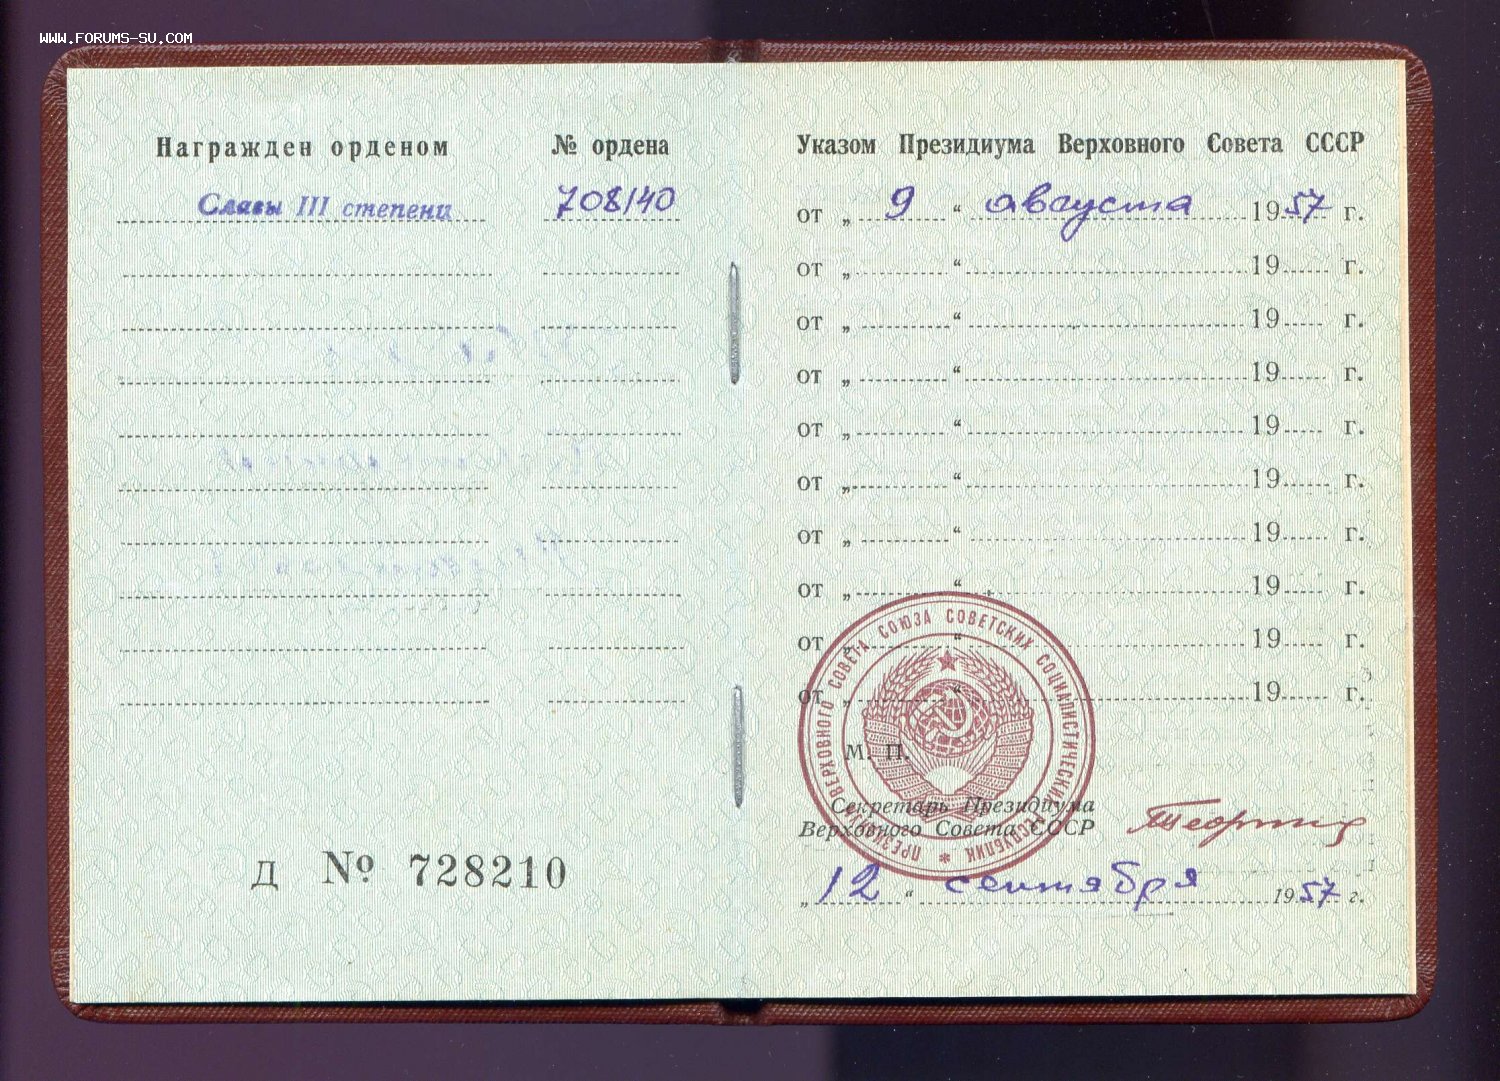 WWW.FORUMS-SU.COM
Награжден орденом
№ ордена
Славы III степени
708140
Д № 728210
Указом Президиума Верховного Совета СССР
от „ 9 “ августа 1957 г.
от „ “ 19 г.
от „ “ 19 г.
от „ “ 19 г.
от „ “ 19 г.
от „ “ 19 г.
от „ “ 19 г.
от „ “ 19 г.
от „ “ 19 г.
от „ “ 19 г.
ПРЕЗИДИУМ ВЕРХОВНОГО СОВЕТА СОЮЗА СОВЕТСКИХ СОЦИАЛИСТИЧЕСКИХ РЕСПУБЛИК
М. П.
Секретарь Президиума
Верховного Совета СССР
„ 12 “ сентября 1957 г.